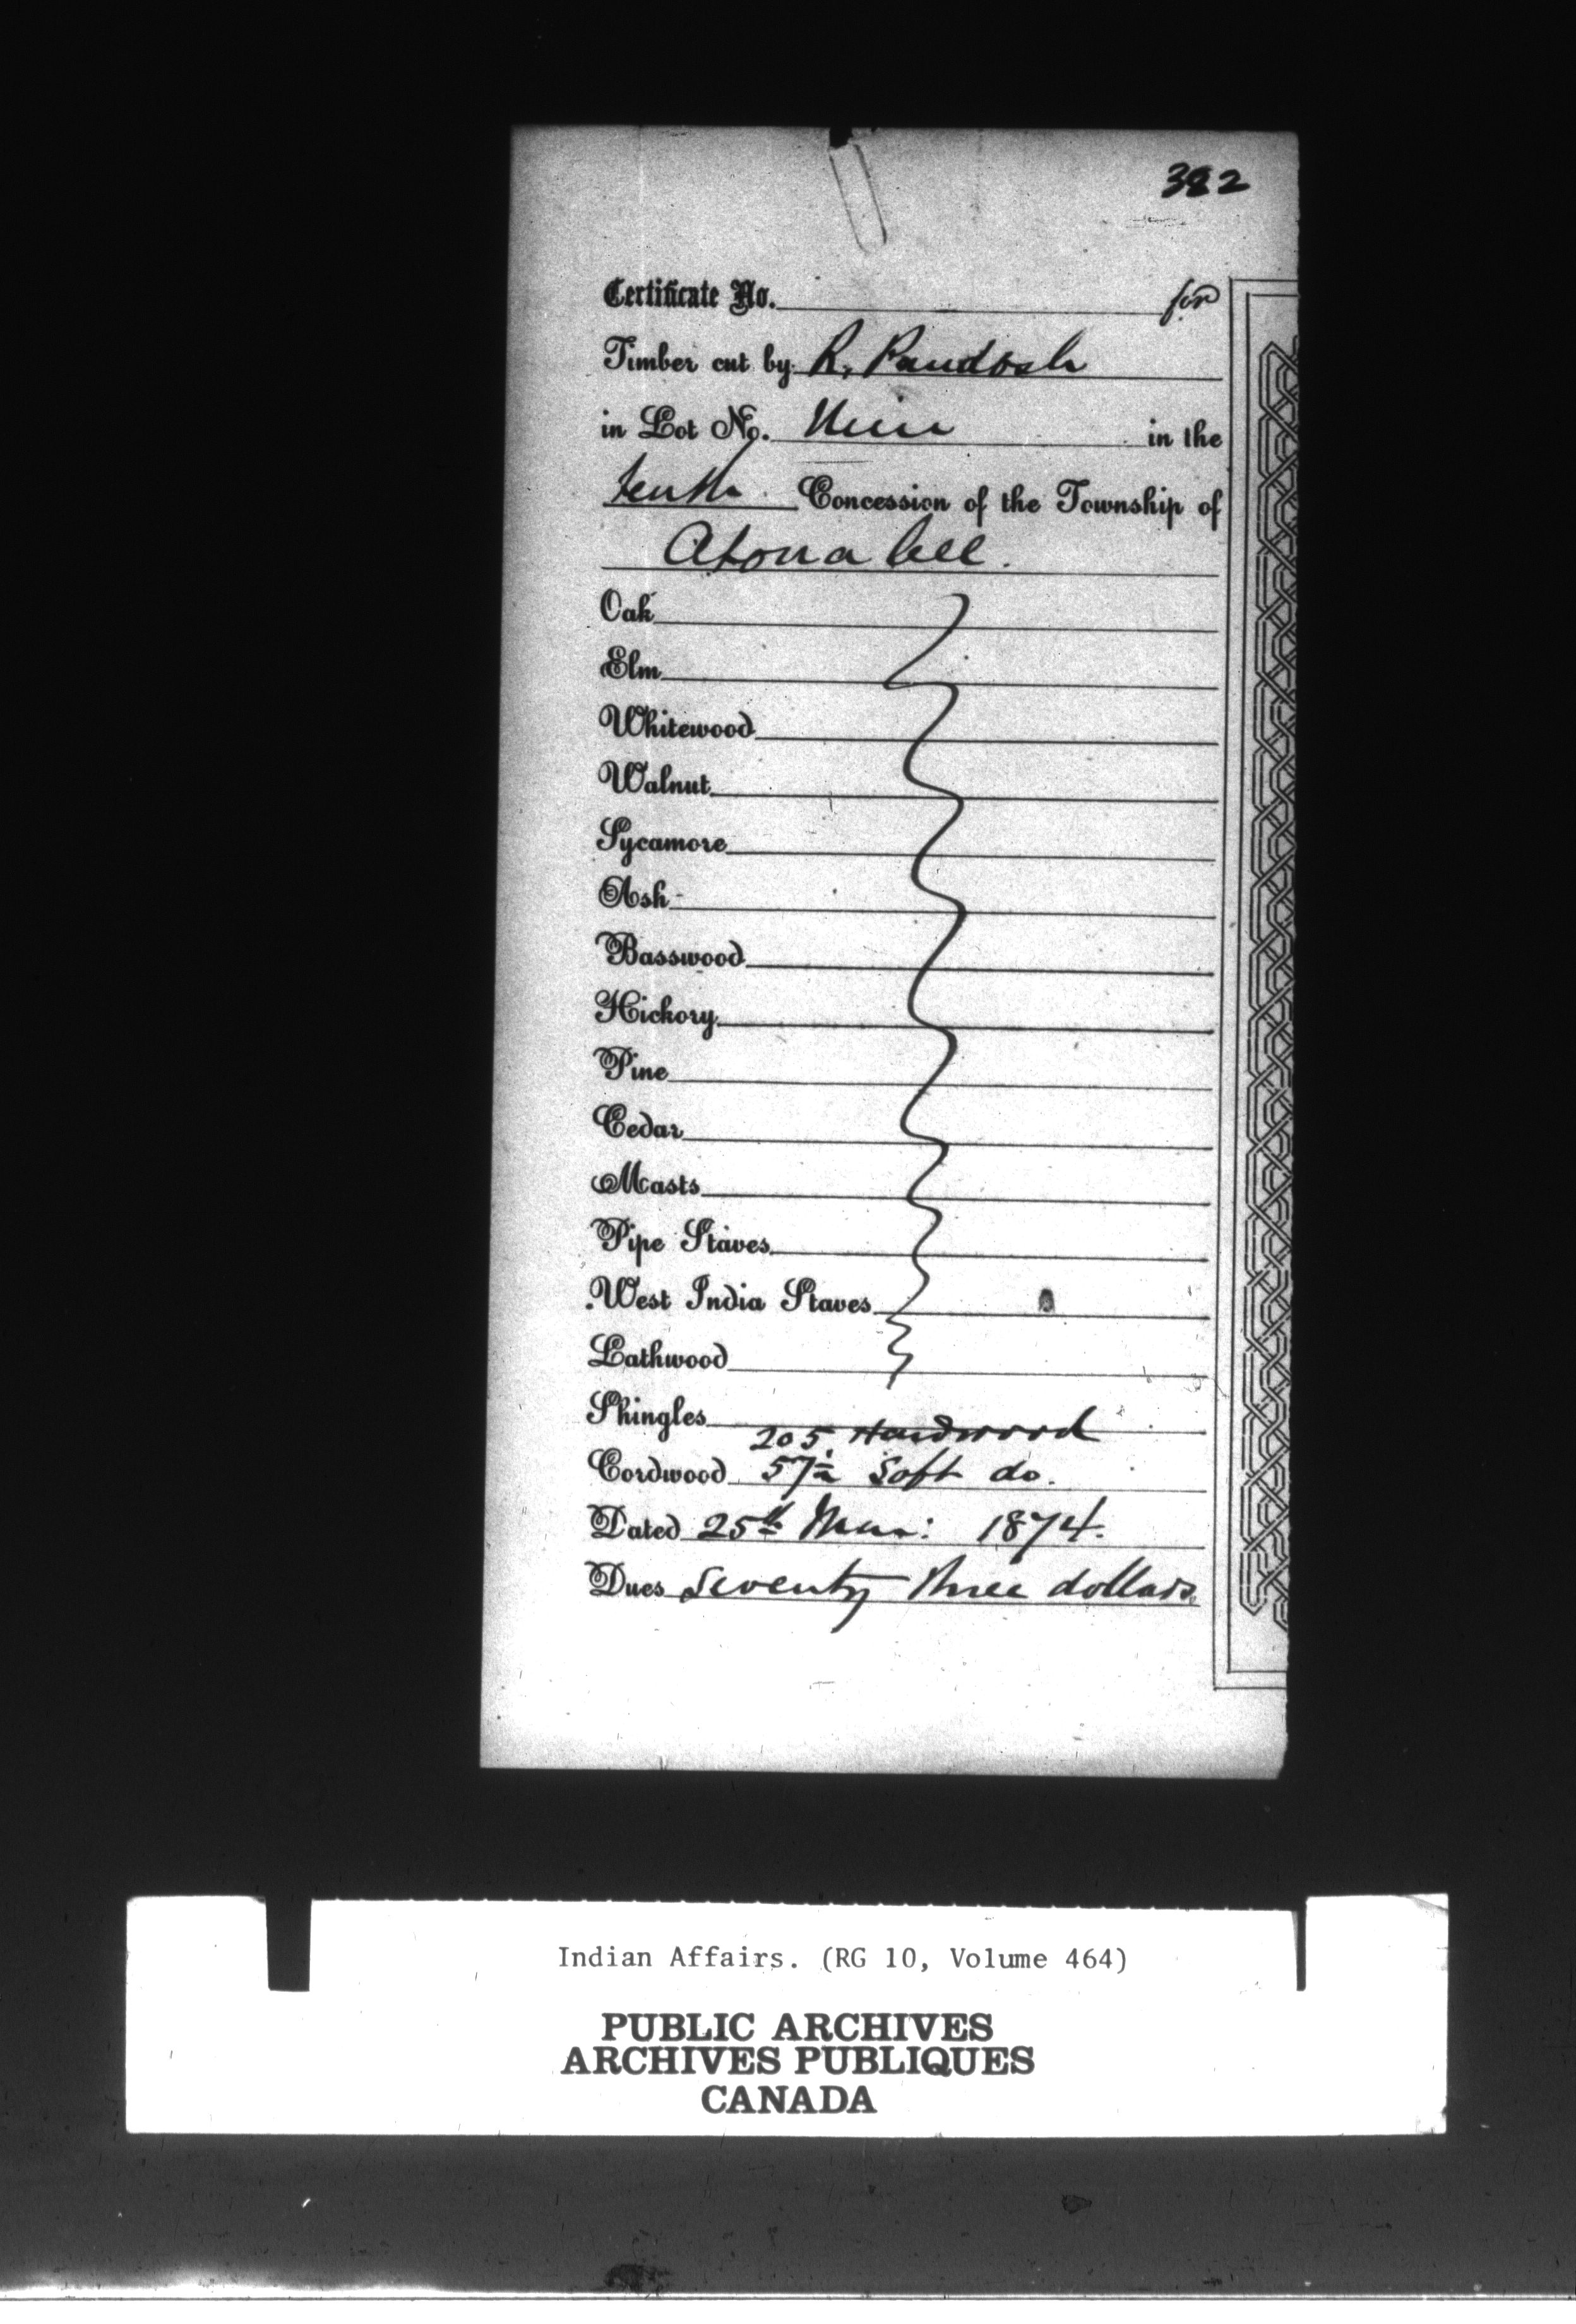 382
Certificate No. for
Timber cut by R. Paudash
in Lot No. Nine in the
tenth Concession of the Township of
Otonabee.
Oak
Elm
Whitewood
Walnut
Sycamore
Ash
Basswood
Hickory
Pine
Cedar
Masts
Pipe Staves
West India Staves
Lathwood
Shingles
205 Hardwood
Cordwood 57½ Soft do.
Dated 25th Mar: 1874.
Dues Seventy three dollars
Indian Affairs. (RG 10, Volume 464)
PUBLIC ARCHIVES
ARCHIVES PUBLIQUES
CANADA